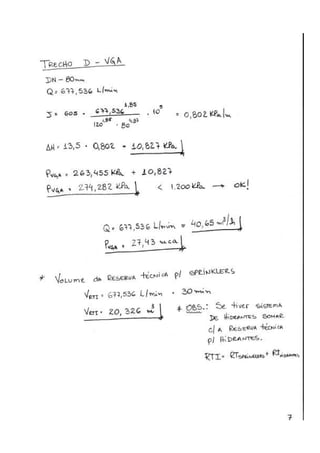 TRECHO D - VGA
DN - 80mm
Q = 677,536 L/min
J = 605 . 677,536^1,85 / 120^1,85 . 80^4,87 . 10^5 = 0,802 KPa/m
ΔH = 13,5 . 0,802 = 10,827 KPa
PVGA = 263,455 KPa + 10,827
PVGA = 274,282 KPa < 1.200 KPa → OK!
Q = 677,536 L/min = 40,65 m³/h
PVGA = 27,43 mca
* VOLUME da RESERVA técnica p/ SPRINKLERS
VRTI = 677,536 L/min . 30 min
VRTI = 20,326 m³ * OBS.: Se tiver sistema
DE HIDRANTES SOMAR
c/ A RESERVA técnica
p/ HIDRANTES.
RTI = RTSPRINKLERS + RTHIDRANTES
7